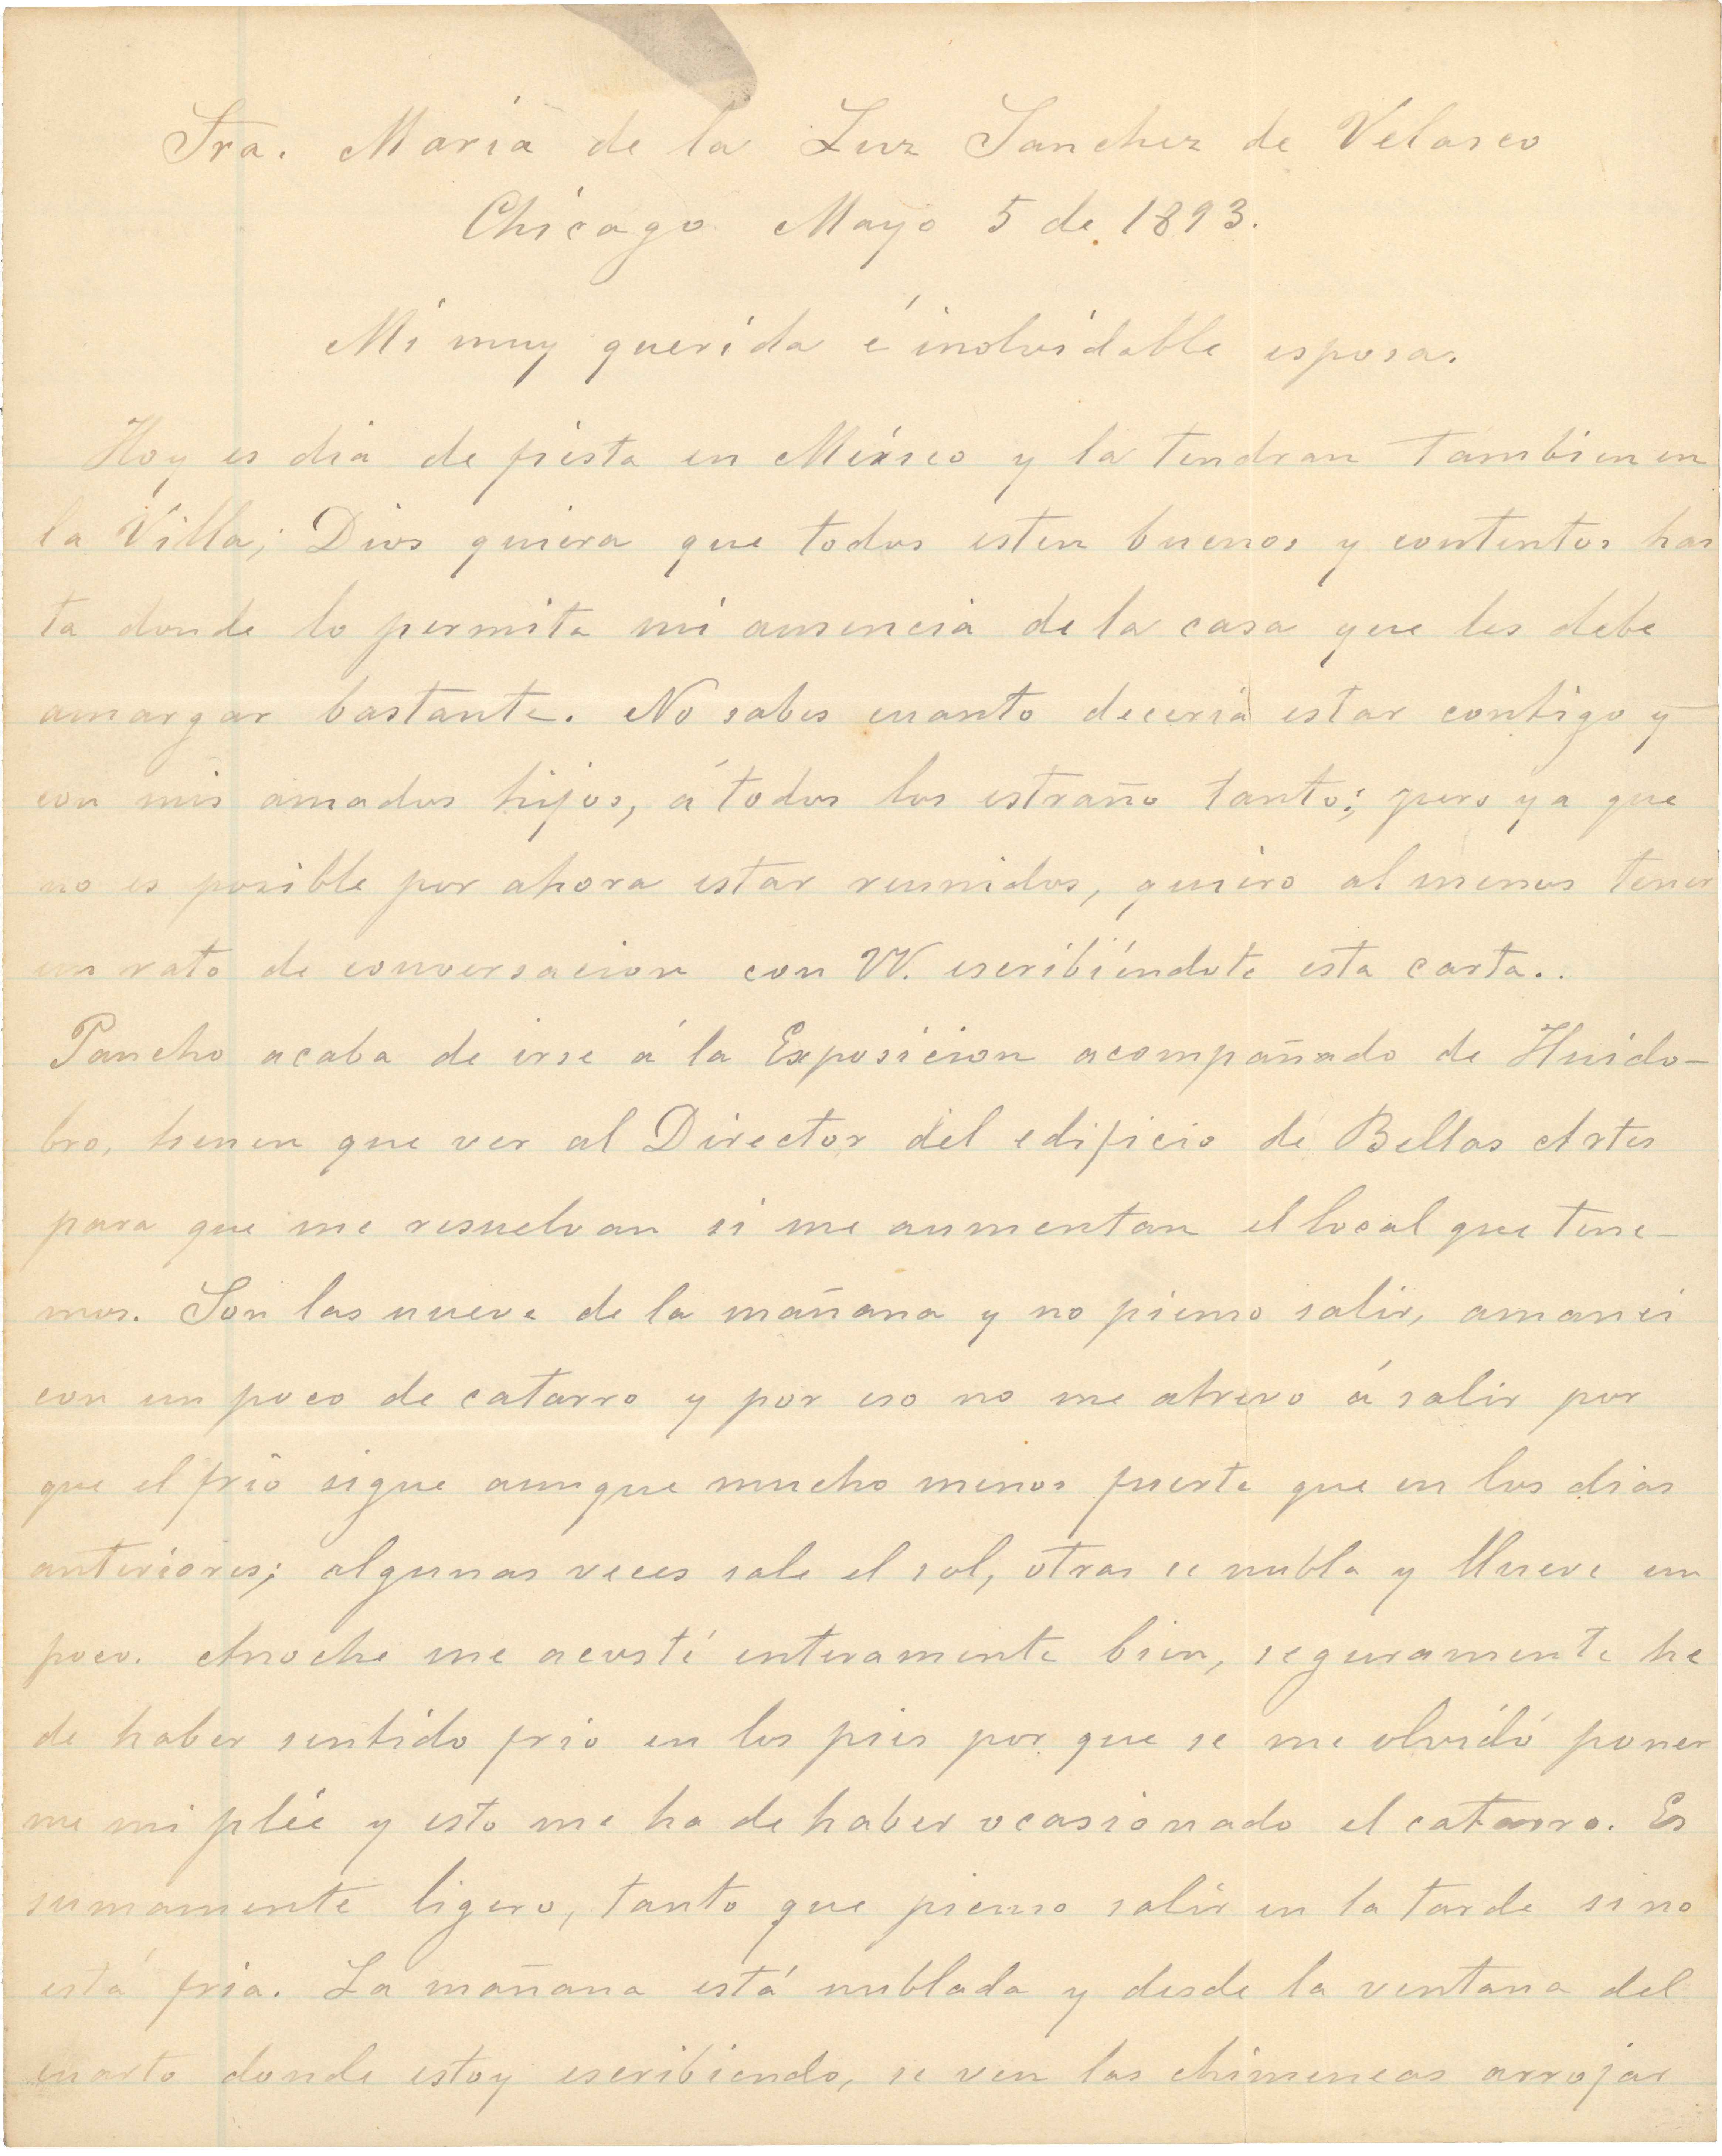 Sra. María de la Luz Sanchez de Velasco
Chicago Mayo 5 de 1893.
Mi muy querida é inolvidable esposa.
Hoy es dia de fiesta en México y la tendran tambien en
la Villa; Dios quiera que todos esten buenos y contentos has
ta donde lo permita mi ausencia de la casa que les debe
amargar bastante. No sabes cuanto deceria estar contigo y
con mis amados hijos, á todos los estraño tanto; pero ya que
no es posible por ahora estar reunidos, quiero al menos tener
un rato de conversacion con VV. escribiéndote esta carta..
Pancho acaba de irse á la Exposicion acompañado de Huido-
bro, tienen que ver al Director del edificio de Bellas Artes
para que me resuelvan si me aumentan el local que tene-
mos. Son las nueve de la mañana y no pienso salir, amaneci
con un poco de catarro y por eso no me atrevo á salir por
que el frio sigue aunque mucho menos fuerte que en los dias
anteriores; algunas veces sale el sol, otras se nubla y llueve un
poco. Anoche me acosté enteramente bien, seguramente he
de haber sentido frio en los pies por que se me olvidó poner
me mi plée y esto me ha de haber ocasionado el catarro. Es
sumamente ligero, tanto que pienso salir en la tarde si no
está fria. La mañana está nublada y desde la ventana del
cuarto donde estoy escribiendo, se ven las chimeneas arrojar